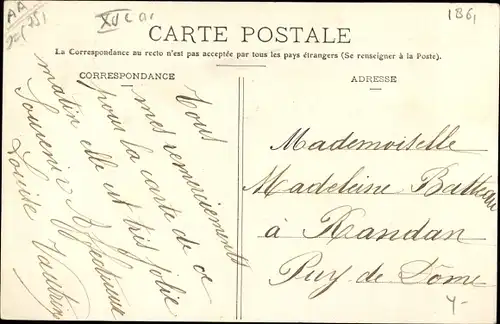 AA
XV Car
186,
CARTE POSTALE
La Correspondance au recto n'est pas acceptée par tous les pays étrangers (Se renseigner à la Poste).
CORRESPONDANCE
Tous
mes remerciements
pour la carte de ce
matin elle est très jolie
Souvenir Affectueux
Louise
ADRESSE
Mademoiselle
Madeleine Batteau
à Randan
Puy de Dome